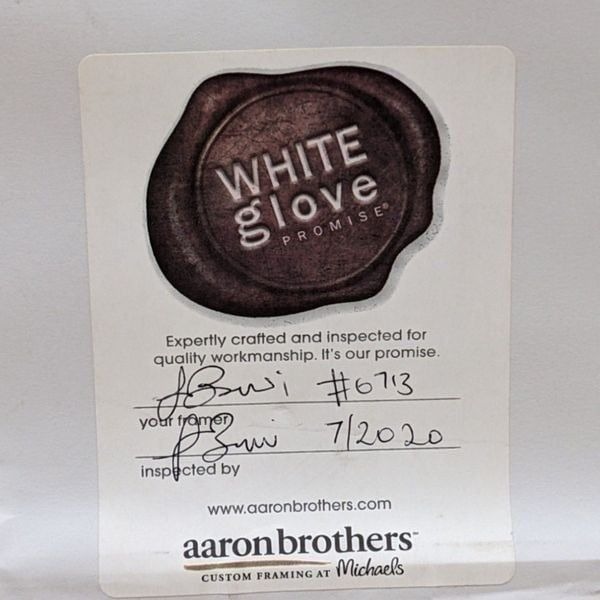 WHITE
glove
PROMISE®
Expertly crafted and inspected for
quality workmanship. It's our promise.
#6713
your framer
7/2020
inspected by
www.aaronbrothers.com
aaronbrothers™
CUSTOM FRAMING AT Michaels